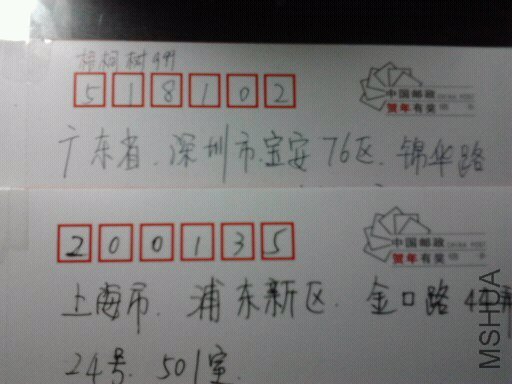 梧桐树441
518102
中国邮政 CHINA POST
贺年有奖
广东省.深圳市.宝安76区.锦华路
200135
中国邮政 CHINA POST
贺年有奖
上海市.浦东新区.金口路
24号.501室.
MSHUA